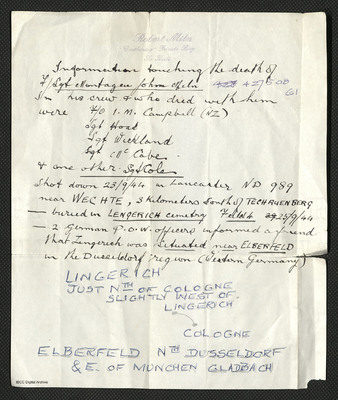 Robert Milne
Information touching the death of
F/Sgt Montague John Meln
In his crew & who died with him
were F/O I. M. Campbell (NZ)
Sgt Hoad
Sgt Wickland
Sgt McCabe
& one other Sgt Cole
Shot down 23/9/44 in Lancaster ND 989
near WECHTE, 3 kilometers South of TECKLENBERG
— buried in LENGERICH cemetery Field 4 25/9/44
— 2 German P.O.W. officers informed a friend
that Lengerich was situated near ELBERFELD
in the Dusseldorf region (Western Germany)
LINGERICH
JUST NTH OF COLOGNE
SLIGHTLY WEST OF.
LINGERICH
COLOGNE
ELBERFELD NTH DUSSELDORF
& E. OF MUNCHEN GLADBACH
IBCC Digital Archive